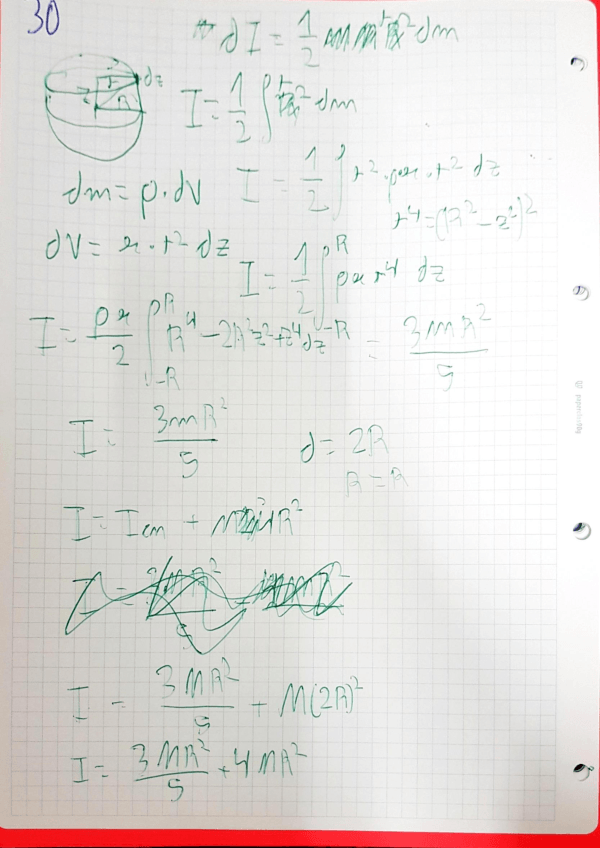 30
dI = 1/2 r² dm
dz
r
R
I = 1/2 ∫ r² dm
dm = ρ · dV
I = 1/2 ∫ r² · ρπ · r² dz
r⁴ = (R² - z²)²
dV = π · r² dz
I = 1/2 ∫_{-R}^{R} ρπ r⁴ dz
I = ρπ/2 ∫_{-R}^{R} R⁴ - 2R²z² + z⁴ dz = 3mR²/5
I = 3mR²/5
d = 2R
R = R
I = Icm + MR²
I = 3MR²/5 + M(2R)²
I = 3MR²/5 + 4MR²